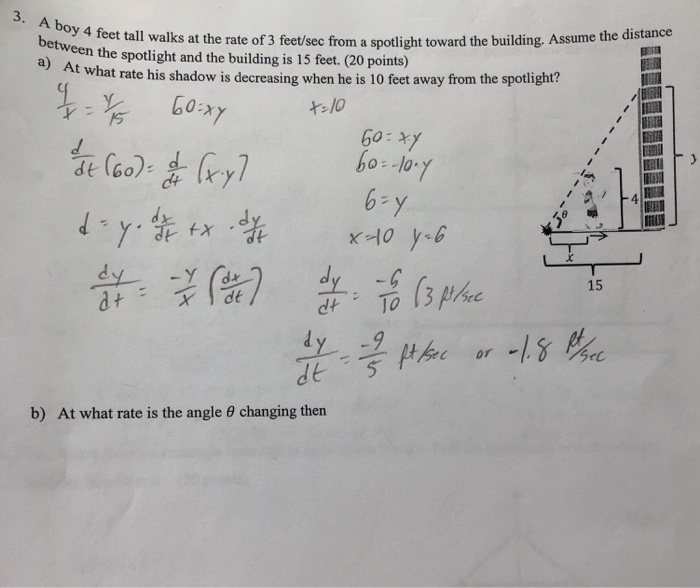 3. A boy 4 feet tall walks at the rate of 3 feet/sec from a spotlight toward the building. Assume the distance
between the spotlight and the building is 15 feet. (20 points)
a) At what rate his shadow is decreasing when he is 10 feet away from the spotlight?
4/x = y/15 60=xy x=10
60=x·y
d/dt (60)= d/dt (x·y) 60=10·y
6=y
d = y· dx/dt + x · dy/dt x=10 y=6
dy/dt = -y/x (dx/dt) dy/dt = -6/10 (3 ft/sec
dy/dt = -9/5 ft/sec or -1.8 ft/sec
θ
4
y
x
15
b) At what rate is the angle θ changing then